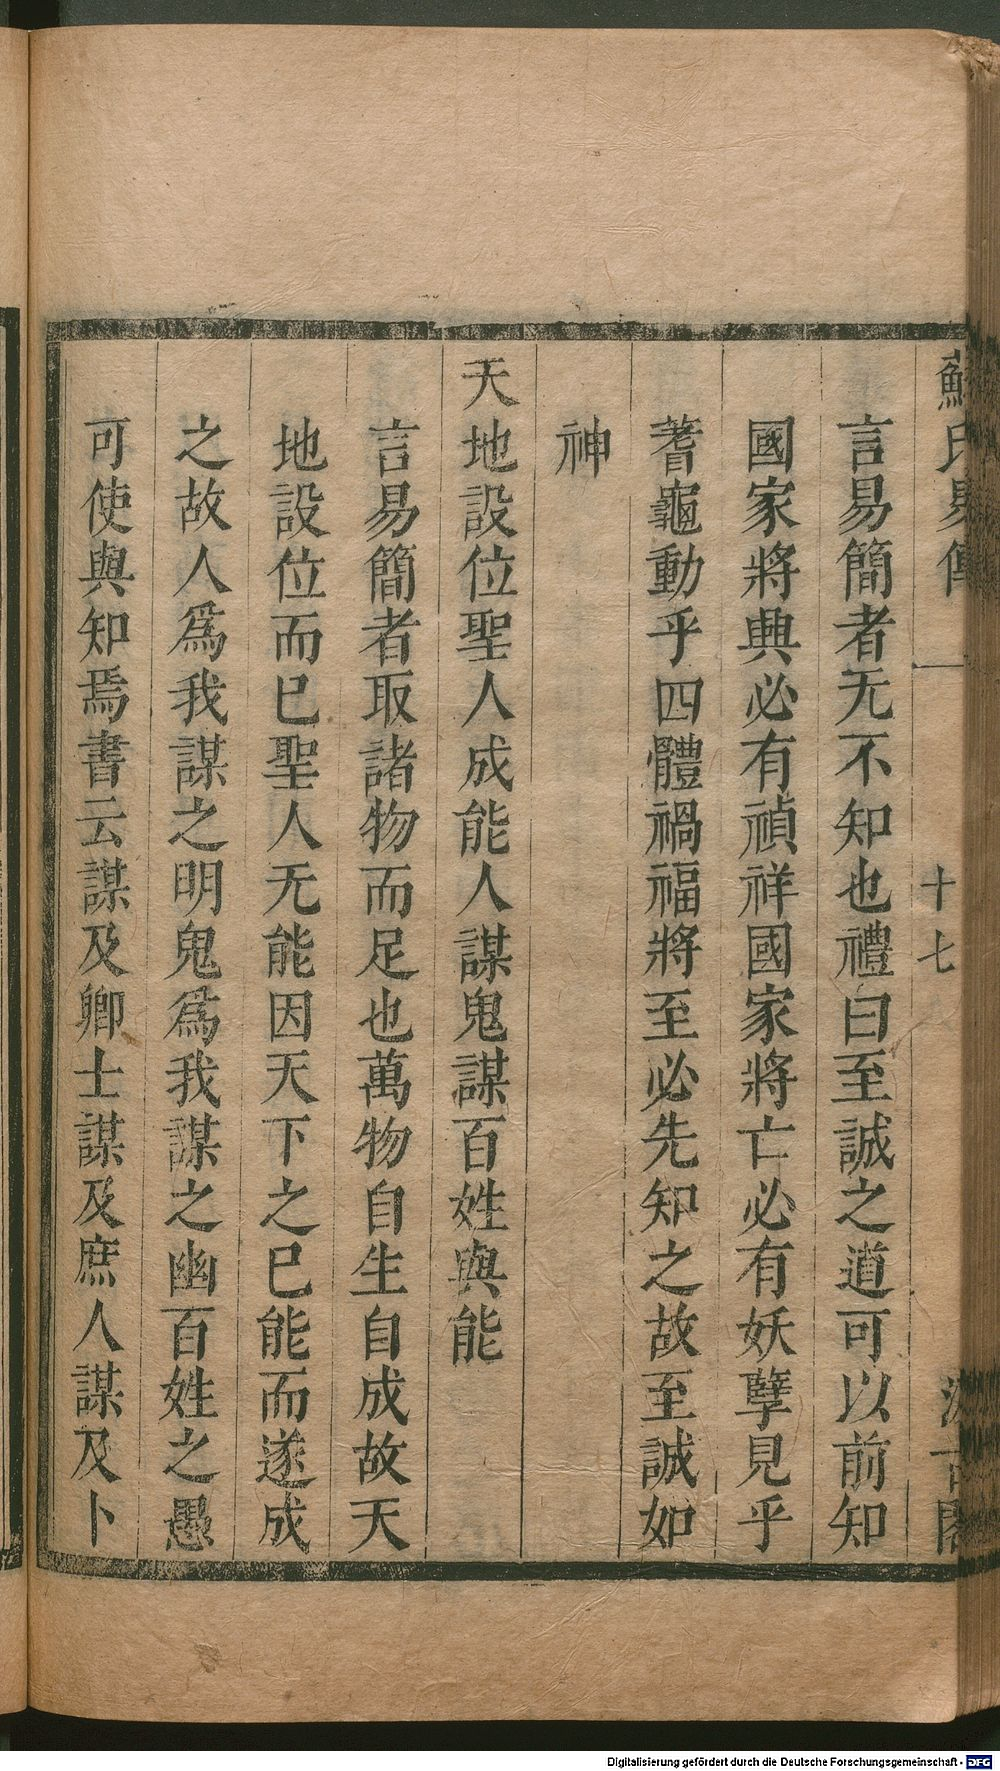 蘇氏易傳
十七
汲古閣
言易簡者无不知也禮曰至誠之道可以前知
國家將興必有禎祥國家將亡必有妖孽見乎
蓍龜動乎四體禍福將至必先知之故至誠如
神
天地設位聖人成能人謀鬼謀百姓與能
言易簡者取諸物而足也萬物自生自成故天
地設位而已聖人无能因天下之已能而遂成
之故人爲我謀之明鬼爲我謀之幽百姓之愚
可使與知焉書云謀及卿士謀及庶人謀及卜
Digitalisierung gefördert durch die Deutsche Forschungsgemeinschaft - DFG